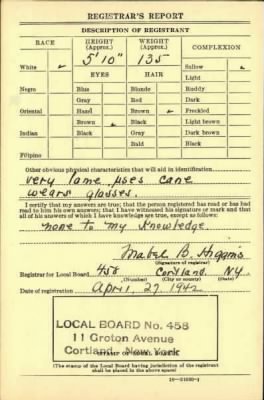 REGISTRAR'S REPORT
DESCRIPTION OF REGISTRANT
RACE HEIGHT (Approx.) WEIGHT (Approx.) COMPLEXION
5'10" 135
White ✓ Sallow ✓
EYES HAIR Light
Negro Blue Blonde Ruddy
Gray Red Dark
Oriental Hazel Brown ✓ Freckled
Brown ✓ Black Light brown
Indian Black Gray Dark brown
Bald Black
Filipino
Other obvious physical characteristics that will aid in identification
very lame uses cane
wears glasses.
I certify that my answers are true; that the person registered has read or has had
read to him his own answers; that I have witnessed his signature or mark and that
all of his answers of which I have knowledge are true, except as follows:
none to my knowledge
Mabel B. Higgins
(Signature of registrar)
Registrar for Local Board 458 Cortland N.Y.
(Number) (City or county) (State)
Date of registration April 27, 1942
LOCAL BOARD No. 458
11 Groton Avenue
Cortland, New York
(STAMP OF LOCAL BOARD)
(The stamp of the Local Board having jurisdiction of the registrant
shall be placed in the above space)